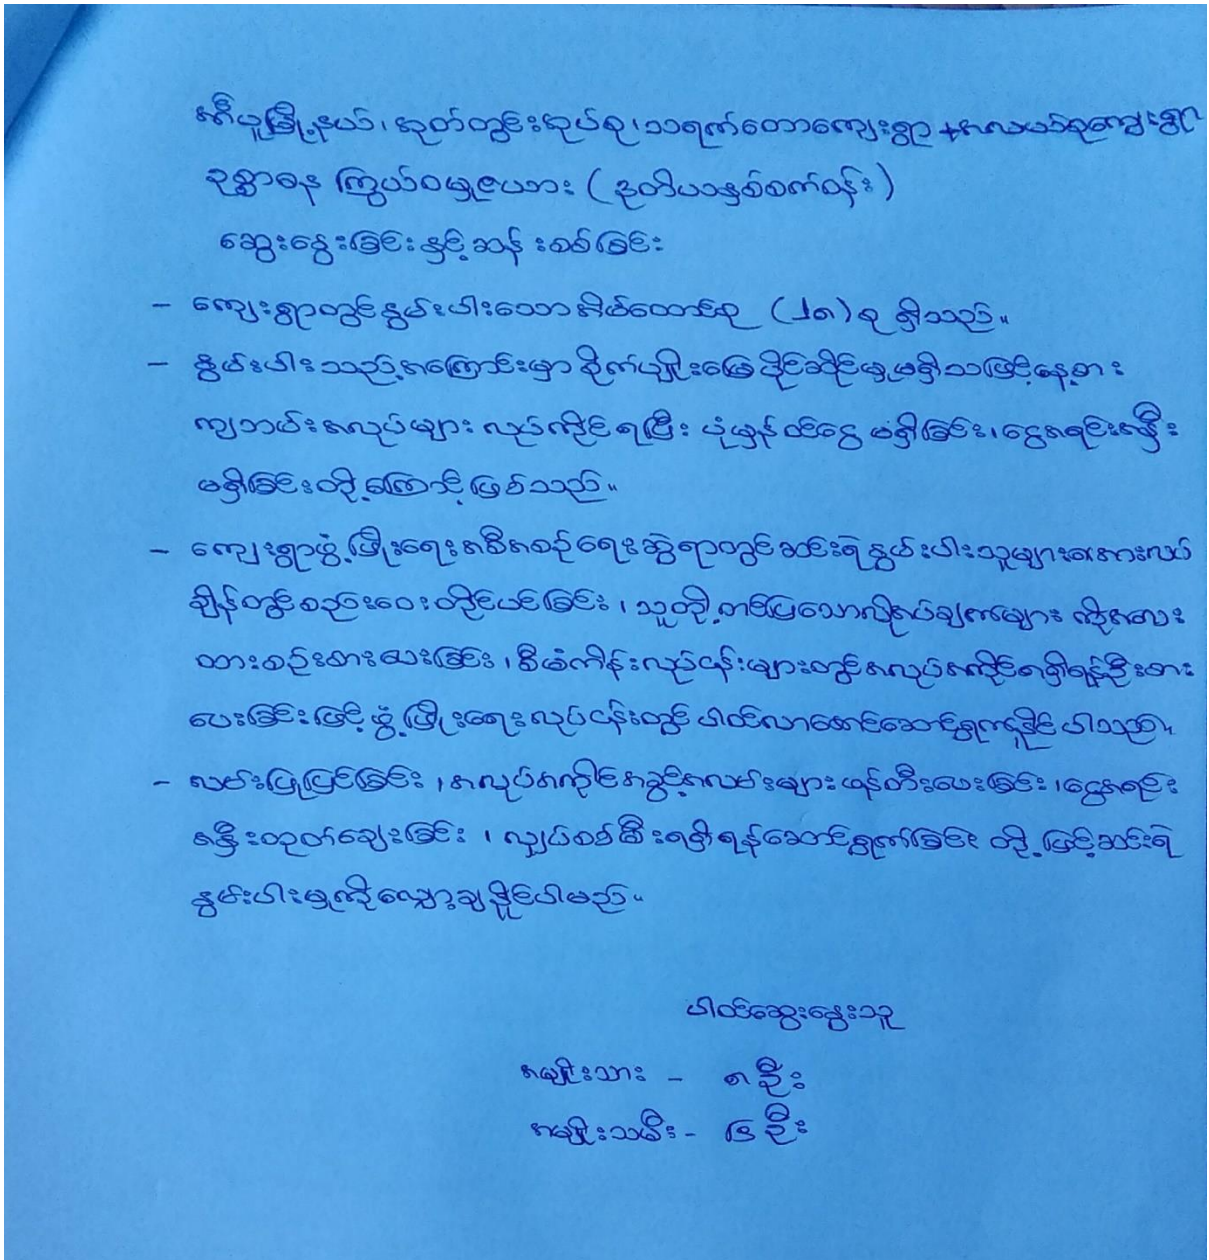 အီယူမြို့နယ်၊ အုတ်တွင်းအုပ်စု၊ သရက်တောကျေးရွာ + အလယ်စုကျေးရွာ
ဥစ္စာဓန ကြွယ်ဝမှုဇယား (ဒုတိယနှစ်စက်ဝန်း)
ဆွေးနွေးခြင်းနှင့်ဆန်းစစ်ခြင်း
- ကျေးရွာတွင်နွမ်းပါးသောအိမ်ထောင်စု (၂၈) စု ရှိသည်။
- နွမ်းပါးသည့်အကြောင်းမှာ စိုက်ပျိုးမြေပိုင်ဆိုင်မှုမရှိသဖြင့်နေ့စား
ကျဘမ်းအလုပ်များ လုပ်ကိုင်ရပြီး ပုံမှန်ဝင်ငွေ မရှိခြင်း၊ ငွေအရင်းအနှီး
မရှိခြင်းတို့ကြောင့် ဖြစ်သည်။
- ကျေးရွာဖွံ့ဖြိုးရေးအစီအစဉ်ရေးဆွဲရာတွင်ဆင်းရဲနွမ်းပါးသူများအားလပ်
ချိန်တွင်စည်းဝေးတိုင်ပင်ခြင်း၊ သူတို့တင်ပြသောလိုအပ်ချက်များ ကိုအလေး
ထားစဉ်းစားပေးခြင်း၊ စီမံကိန်းလုပ်ငန်းများတွင်အလုပ်အကိုင်ရရှိရန်ဦးစား
ပေးခြင်းဖြင့် ဖွံ့ဖြိုးရေးလုပ်ငန်းတွင် ပါဝင်လာအောင်ဆောင်ရွက်နိုင်ပါသည်။
- လမ်းပြုပြင်ခြင်း၊ အလုပ်အကိုင်အခွင့်အလမ်းများ ဖန်တီးပေးခြင်း၊ ငွေအရင်း
အနှီးထုတ်ချေးခြင်း၊ လျှပ်စစ်မီးရရှိရန်ဆောင်ရွက်ခြင်း တို့ဖြင့်ဆင်းရဲ
နွမ်းပါးမှုကိုလျှော့ချနိုင်ပါမည်။
ပါဝင်ဆွေးနွေးသူ
အမျိုးသား - ၈ ဦး
အမျိုးသမီး - ဦး